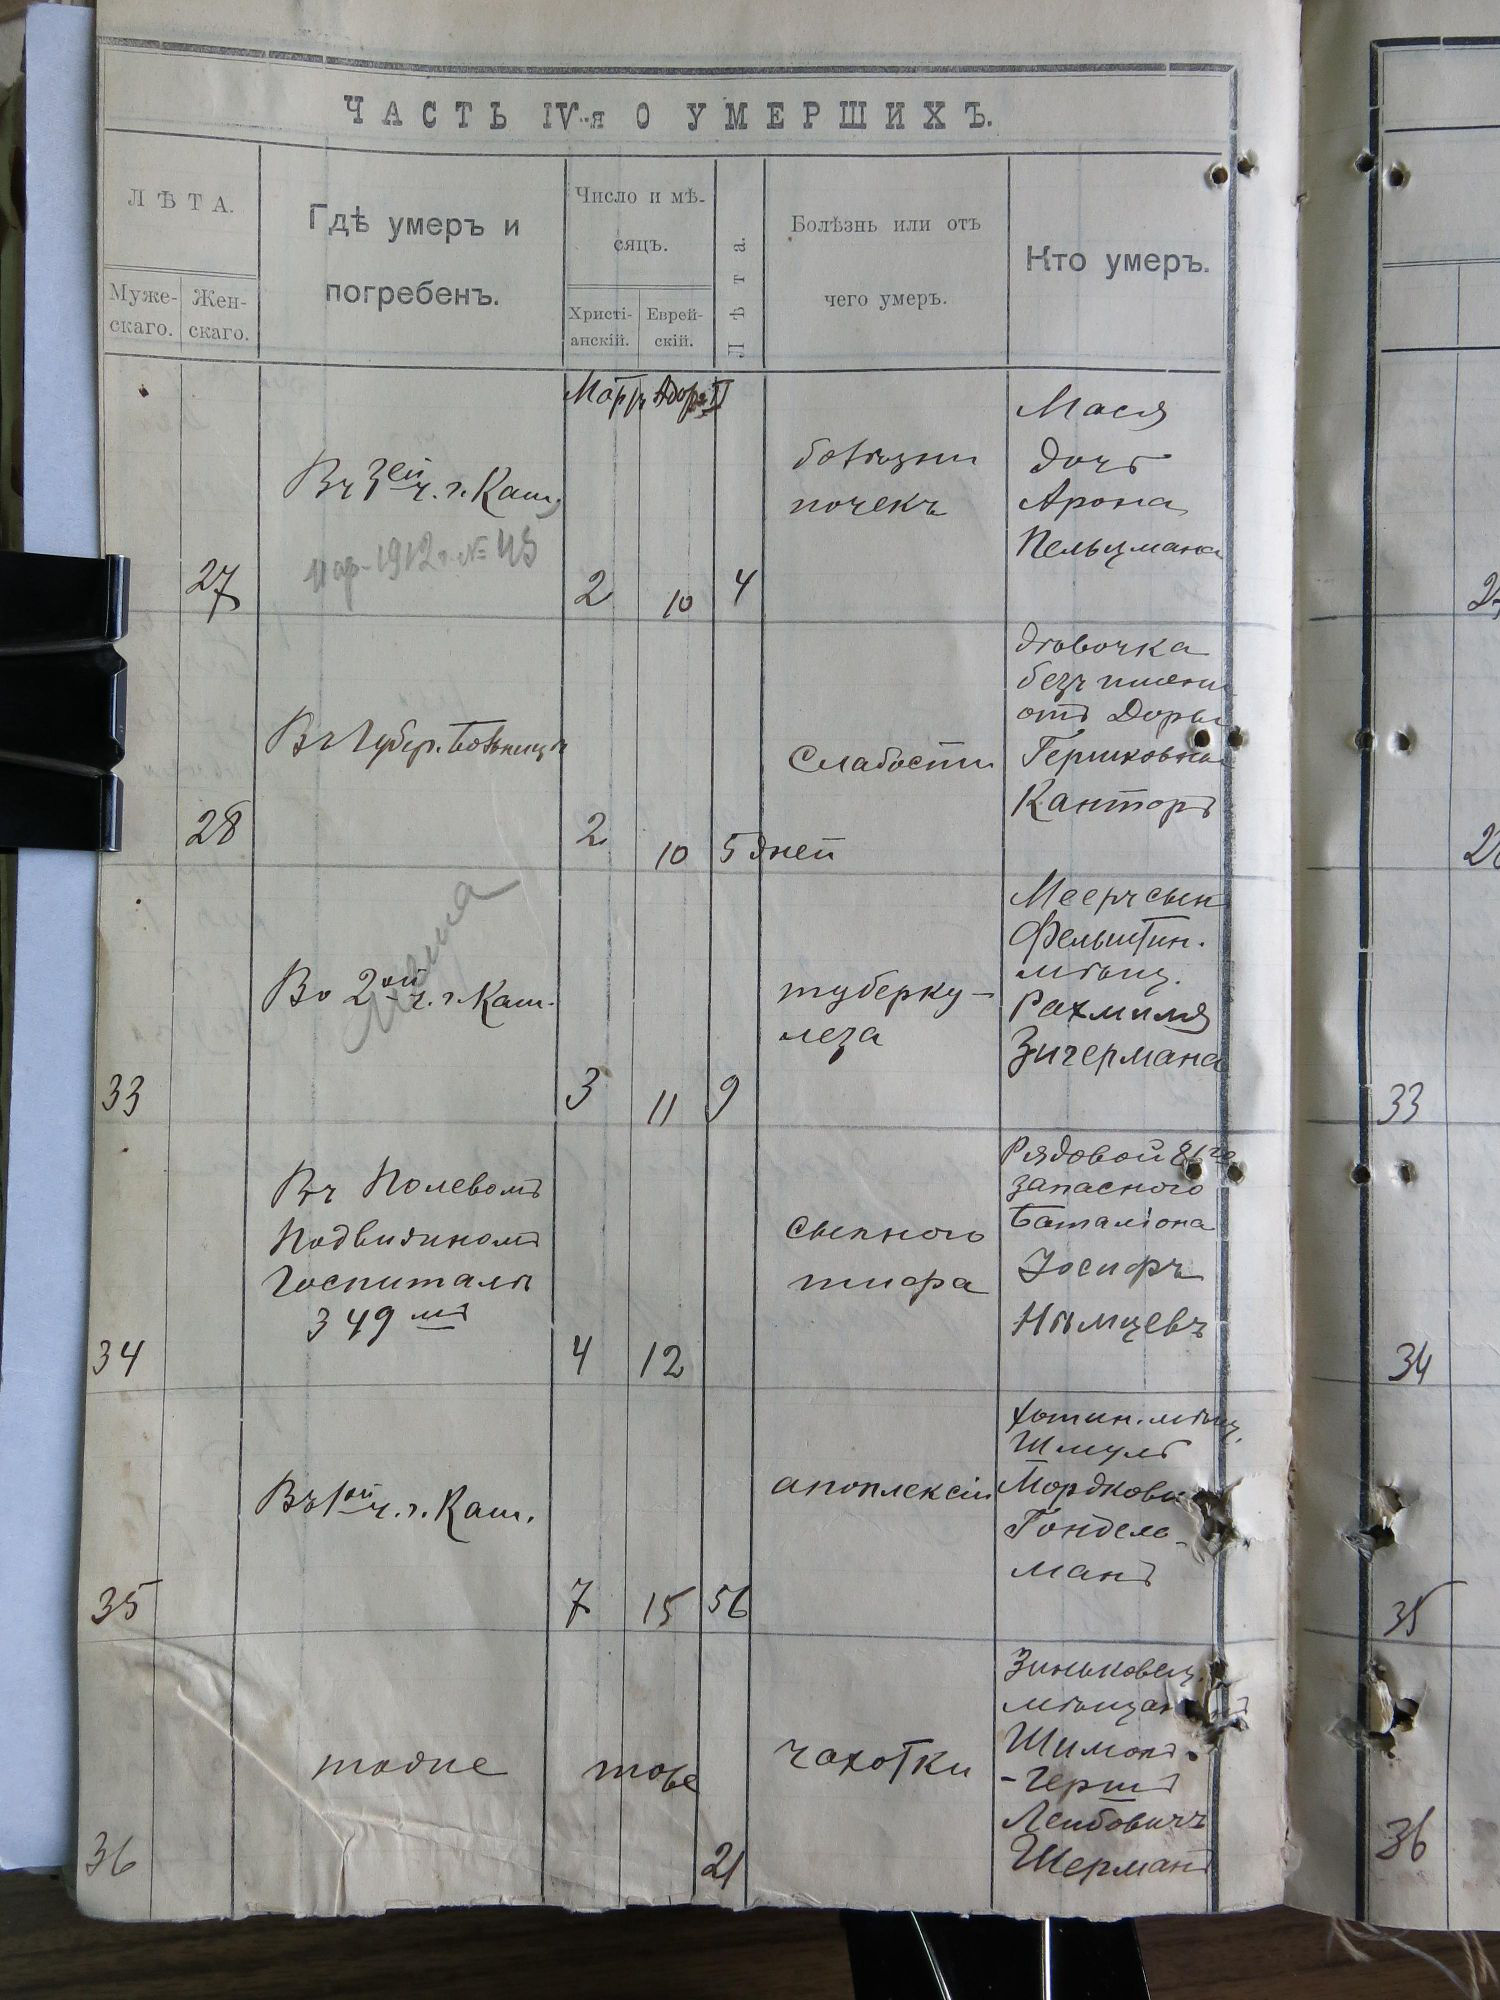 ЧАСТЬ IV-я О УМЕРШИХЪ.
ЛѢТА.
Муже-
скаго.
Жен-
скаго.
Гдѣ умеръ и
погребенъ.
Число и мѣ-
сяцъ.
Христі-
анскій.
Еврей-
скій.
Лѣта.
Болѣзнь или отъ
чего умеръ.
Кто умеръ.
Мартъ
Адоръ II
27
Въ 3ей ч. г. Кам.
1912 г. № 45
2
10
4
болѣзни
почекъ
Мася
дочь
Арона
Пельцмана
28
Въ Губер. Больницѣ
2
10
5 дней
слабости
дѣвочка
безъ имени
отъ Доры
Гершковны
Канторъ
33
Во 2ой ч. г. Кам.
3
11
9
туберку-
леза
Мееръ сын
Фельштин.
мѣщ.
Рахмиля
Зичермана
34
Въ Полевомъ
Подвижномъ
Госпиталѣ
349 мъ
4
12
сыпного
тифа
Рядовой 81го
запасного
Баталіона
Іосифъ
Нѣмцевъ
35
Въ 1ой ч. г. Кам.
7
15
56
апоплексіи
Хотин. мѣщ.
Шмуль
Мордкович
Гондель-
манъ
36
тодие
тоже
21
чахотки
Зиньковец.
мѣщан
Шимонъ
-Гершъ
Лейбовичъ
Шерманъ
33
34
35
36